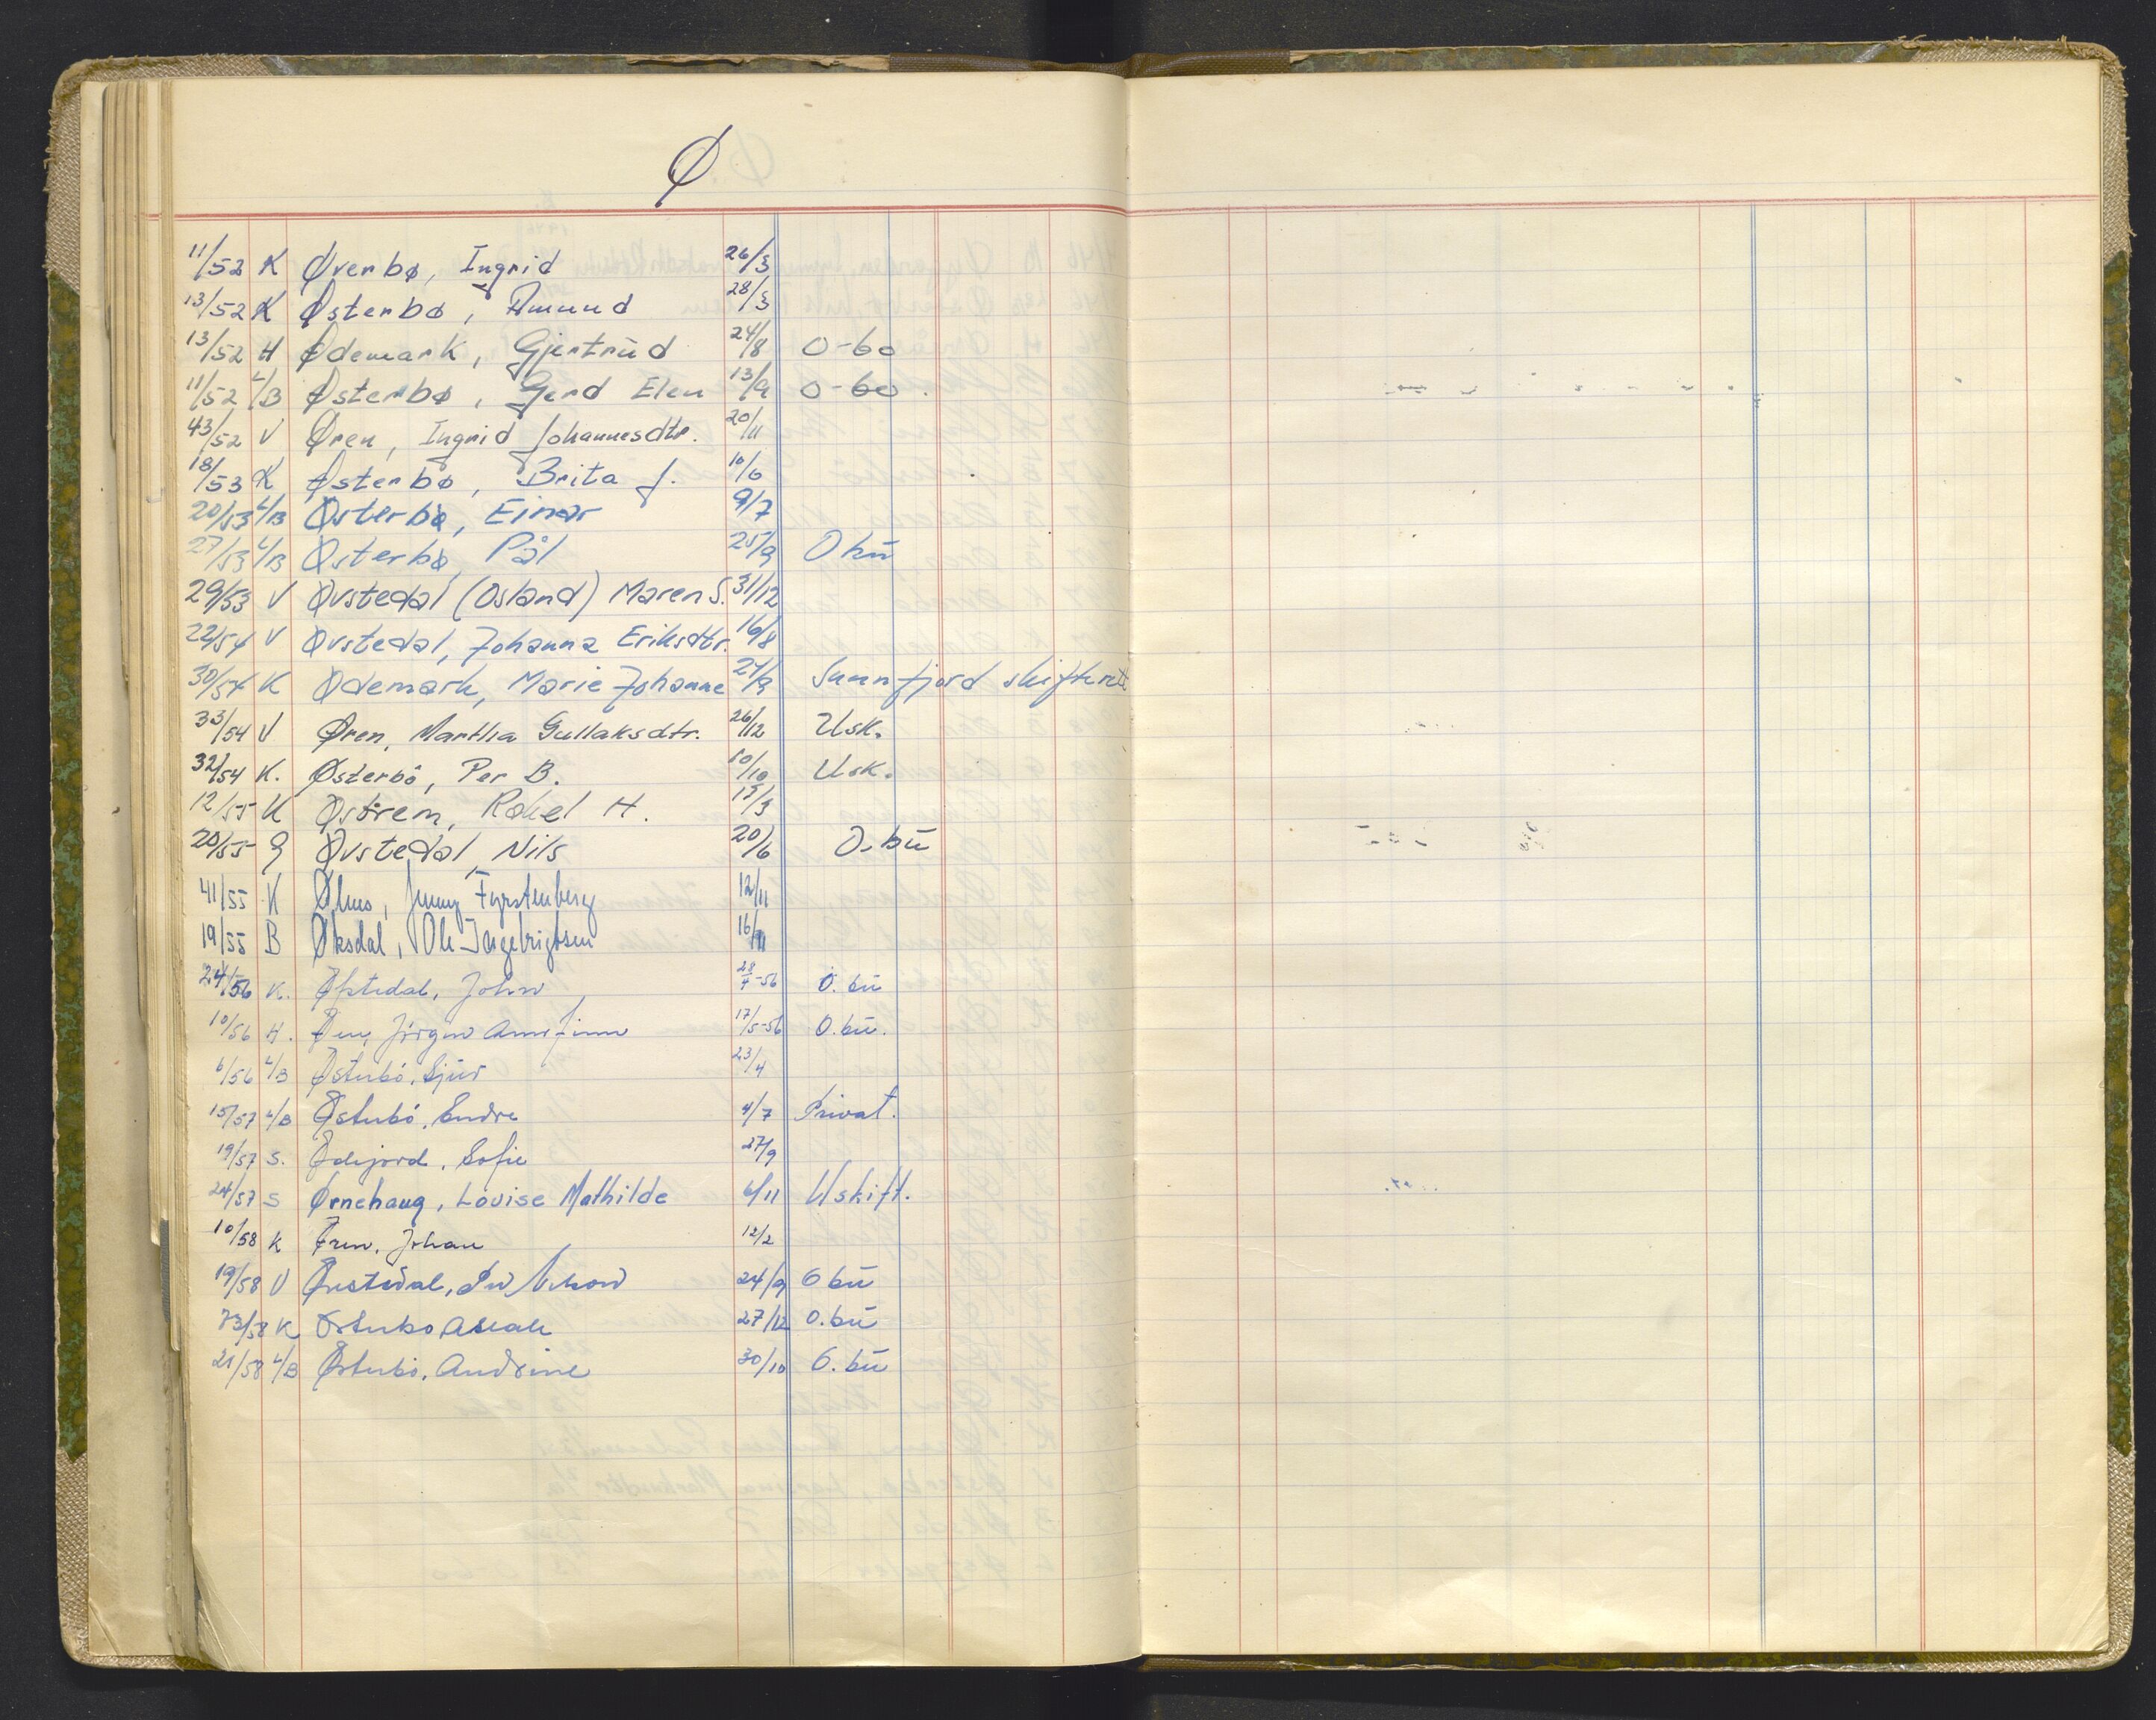 Ø
11/52 K Øverbø, Ingrid 26/3
13/52 K Østerbø, Amund 28/3
13/52 H Ødemark, Gjertrud 24/8 O-bo
11/52 L/B Østerbø, Gerd Elen 13/9 O-bo.
43/52 V Øren, Ingrid Johannesdtr. 20/11
18/53 K Østerbø, Brita J. 10/6
20/53 L/B Østerbø, Einar 9/7
27/53 L/B Østerbø, Pål 25/9 O bu
29/53 V Øvstedal (Osland) Maren S. 31/12
22/54 V Øvstedal, Johanna Eriksdtr. 16/8
30/54 K Ødemark, Marie Johanne 24/9 Sunnfjord skifterett
33/54 V Øren, Martha Gullaksdtr. 26/12 Usk.
32/54 K. Østerbö, Per B. 10/10 Usk.
12/55 K Øströem, Rakel H. 15/3
20/55 G Øvstedal, Nils 20/6 O.bu
41/55 K Ølmo, Jenny Fyrstenberg 12/11
19/55 B Øksdal, Ole Ingebrigtsen 16/11
24/56 K. Øfstedal, Johan 28/4-56 O.bu
10/56 H. Øen, Jörgen 17/5-56 O.bu.
6/56 L/B Østerbö, Sjur 23/4
15/57 L/B Østerbö, Sndre 4/7 Privat.
19/57 S. Ødejord, Sofie 27/9
24/57 S Ørnehaug, Lovise Mathilde 6/11 Uskift.
10/58 K Øren, Johan 12/2
19/58 V Øvstedal, Per 24/9 O bu
73/58 K Østerbo 27/12 O.bu
21/58 L/B Østerbö, Andrine 30/10 O.bu